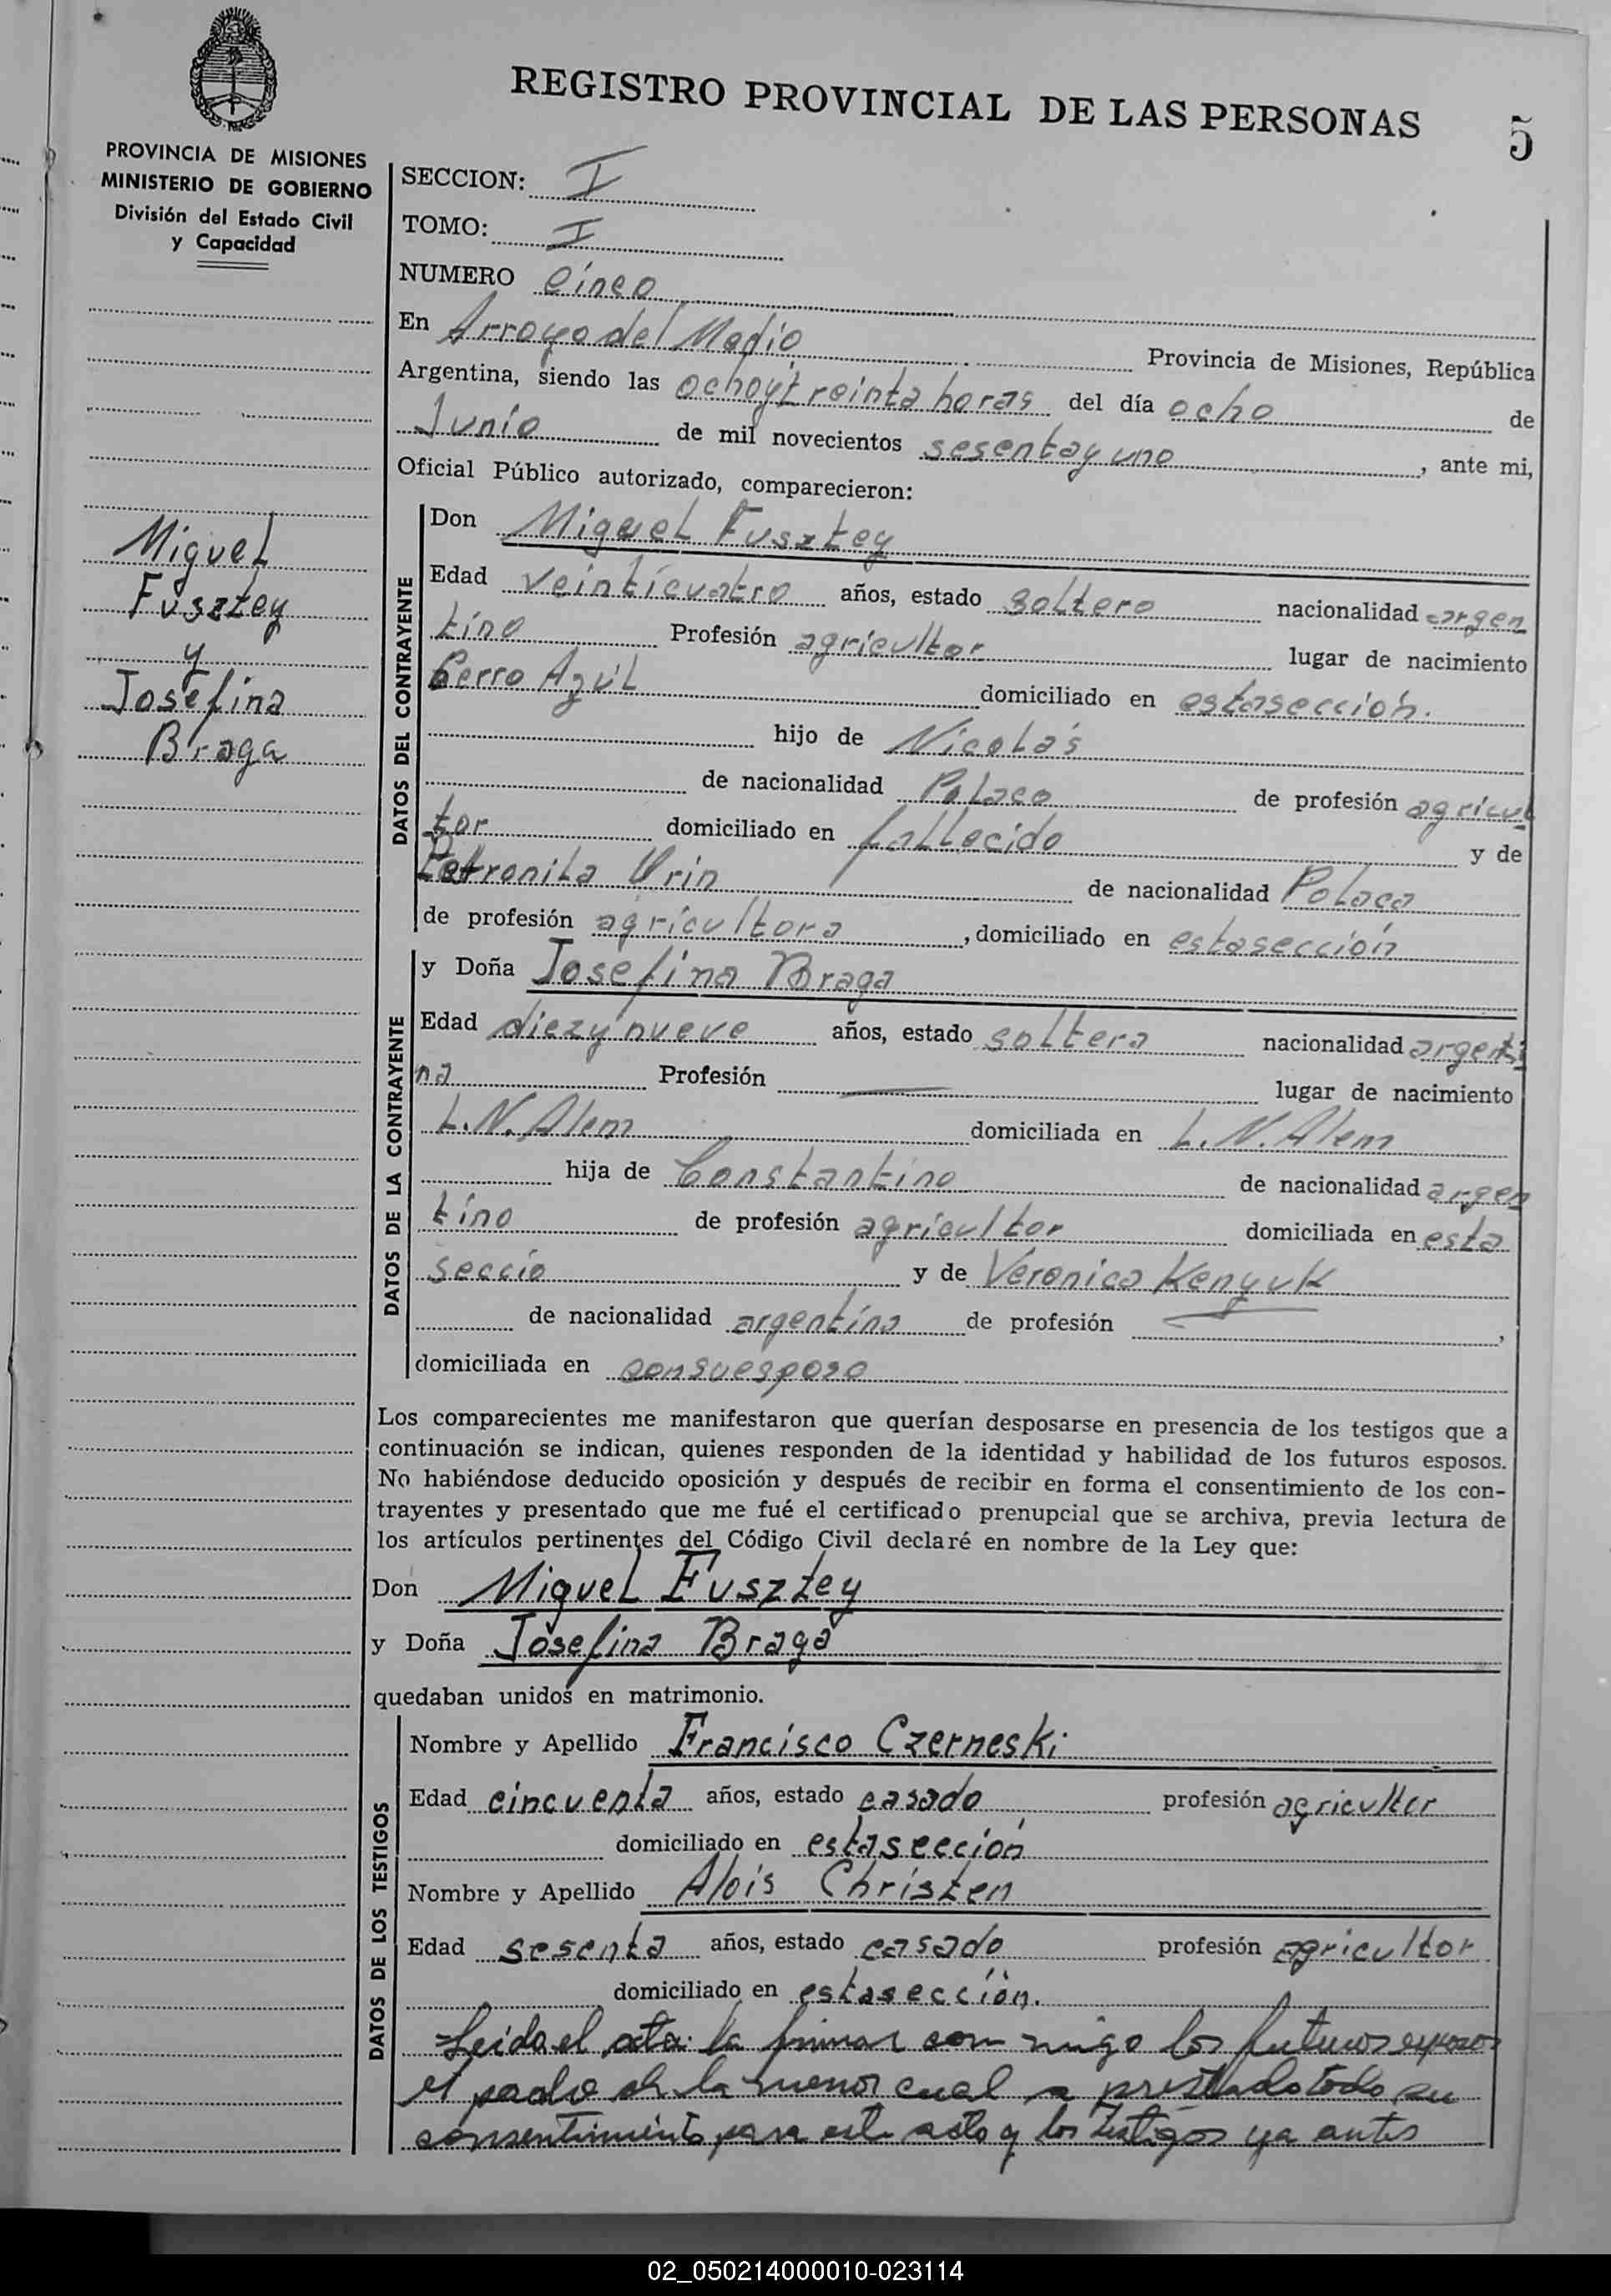 REGISTRO PROVINCIAL DE LAS PERSONAS
5
PROVINCIA DE MISIONES
MINISTERIO DE GOBIERNO
División del Estado Civil
y Capacidad
Miguel
Fusztey
y
Josefina
Braga
SECCION: I
TOMO: I
NUMERO cinco
En Arroyo del Medio Provincia de Misiones, República
Argentina, siendo las ocho y treinta horas del día ocho de
Junio de mil novecientos sesenta y uno, ante mi,
Oficial Público autorizado, comparecieron:
DATOS DEL CONTRAYENTE
Don Miguel Fusztey
Edad veinticuatro años, estado soltero nacionalidad argen
tino Profesión agricultor lugar de nacimiento
Cerro Azul domiciliado en esta sección.
hijo de Nicolás
de nacionalidad Polaco de profesión agricul
tor domiciliado en fallecido y de
Petronila Urin de nacionalidad Polaca
de profesión agricultora, domiciliado en esta sección
DATOS DE LA CONTRAYENTE
y Doña Josefina Braga
Edad diez y nueve años, estado soltera nacionalidad argenti
na Profesión — lugar de nacimiento
L.N. Alem domiciliada en L.N. Alem
hija de Constantino de nacionalidad argen
tino de profesión agricultor domiciliada en esta
seccio y de Veronica Kenyuk
de nacionalidad argentina de profesión —,
domiciliada en con su esposo
Los comparecientes me manifestaron que querían desposarse en presencia de los testigos que a
continuación se indican, quienes responden de la identidad y habilidad de los futuros esposos.
No habiéndose deducido oposición y después de recibir en forma el consentimiento de los con-
trayentes y presentado que me fué el certificado prenupcial que se archiva, previa lectura de
los artículos pertinentes del Código Civil declaré en nombre de la Ley que:
Don Miguel Fusztey
y Doña Josefina Braga
quedaban unidos en matrimonio.
DATOS DE LOS TESTIGOS
Nombre y Apellido Francisco Czerneski
Edad cincuenta años, estado casado profesión agricultor
domiciliado en esta sección
Nombre y Apellido Alois Christen
Edad sesenta años, estado casado profesión agricultor
domiciliado en esta sección.
Leida el acta la firman con migo los futuros esposos
el padre de la menor cual a prestado todo su
consentimiento para este acto y los testigos ya antes
02_050214000010-023114